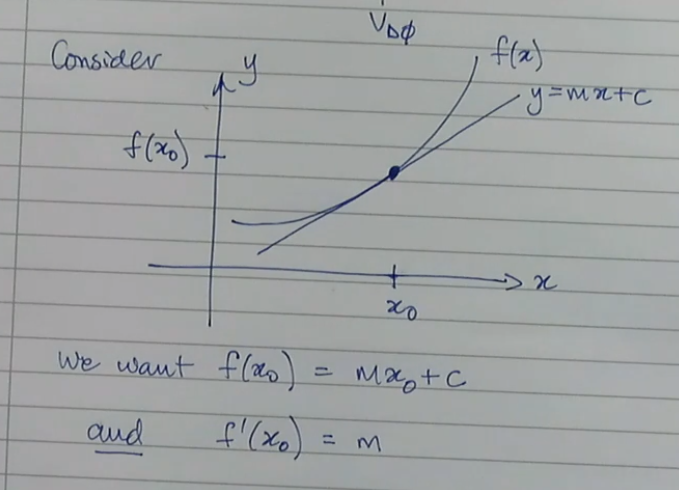 V_DΦ
Consider
y
f(x)
y=mx+c
f(x₀)
x
x₀
We want f(x₀) = mx₀+c
and f'(x₀) = m